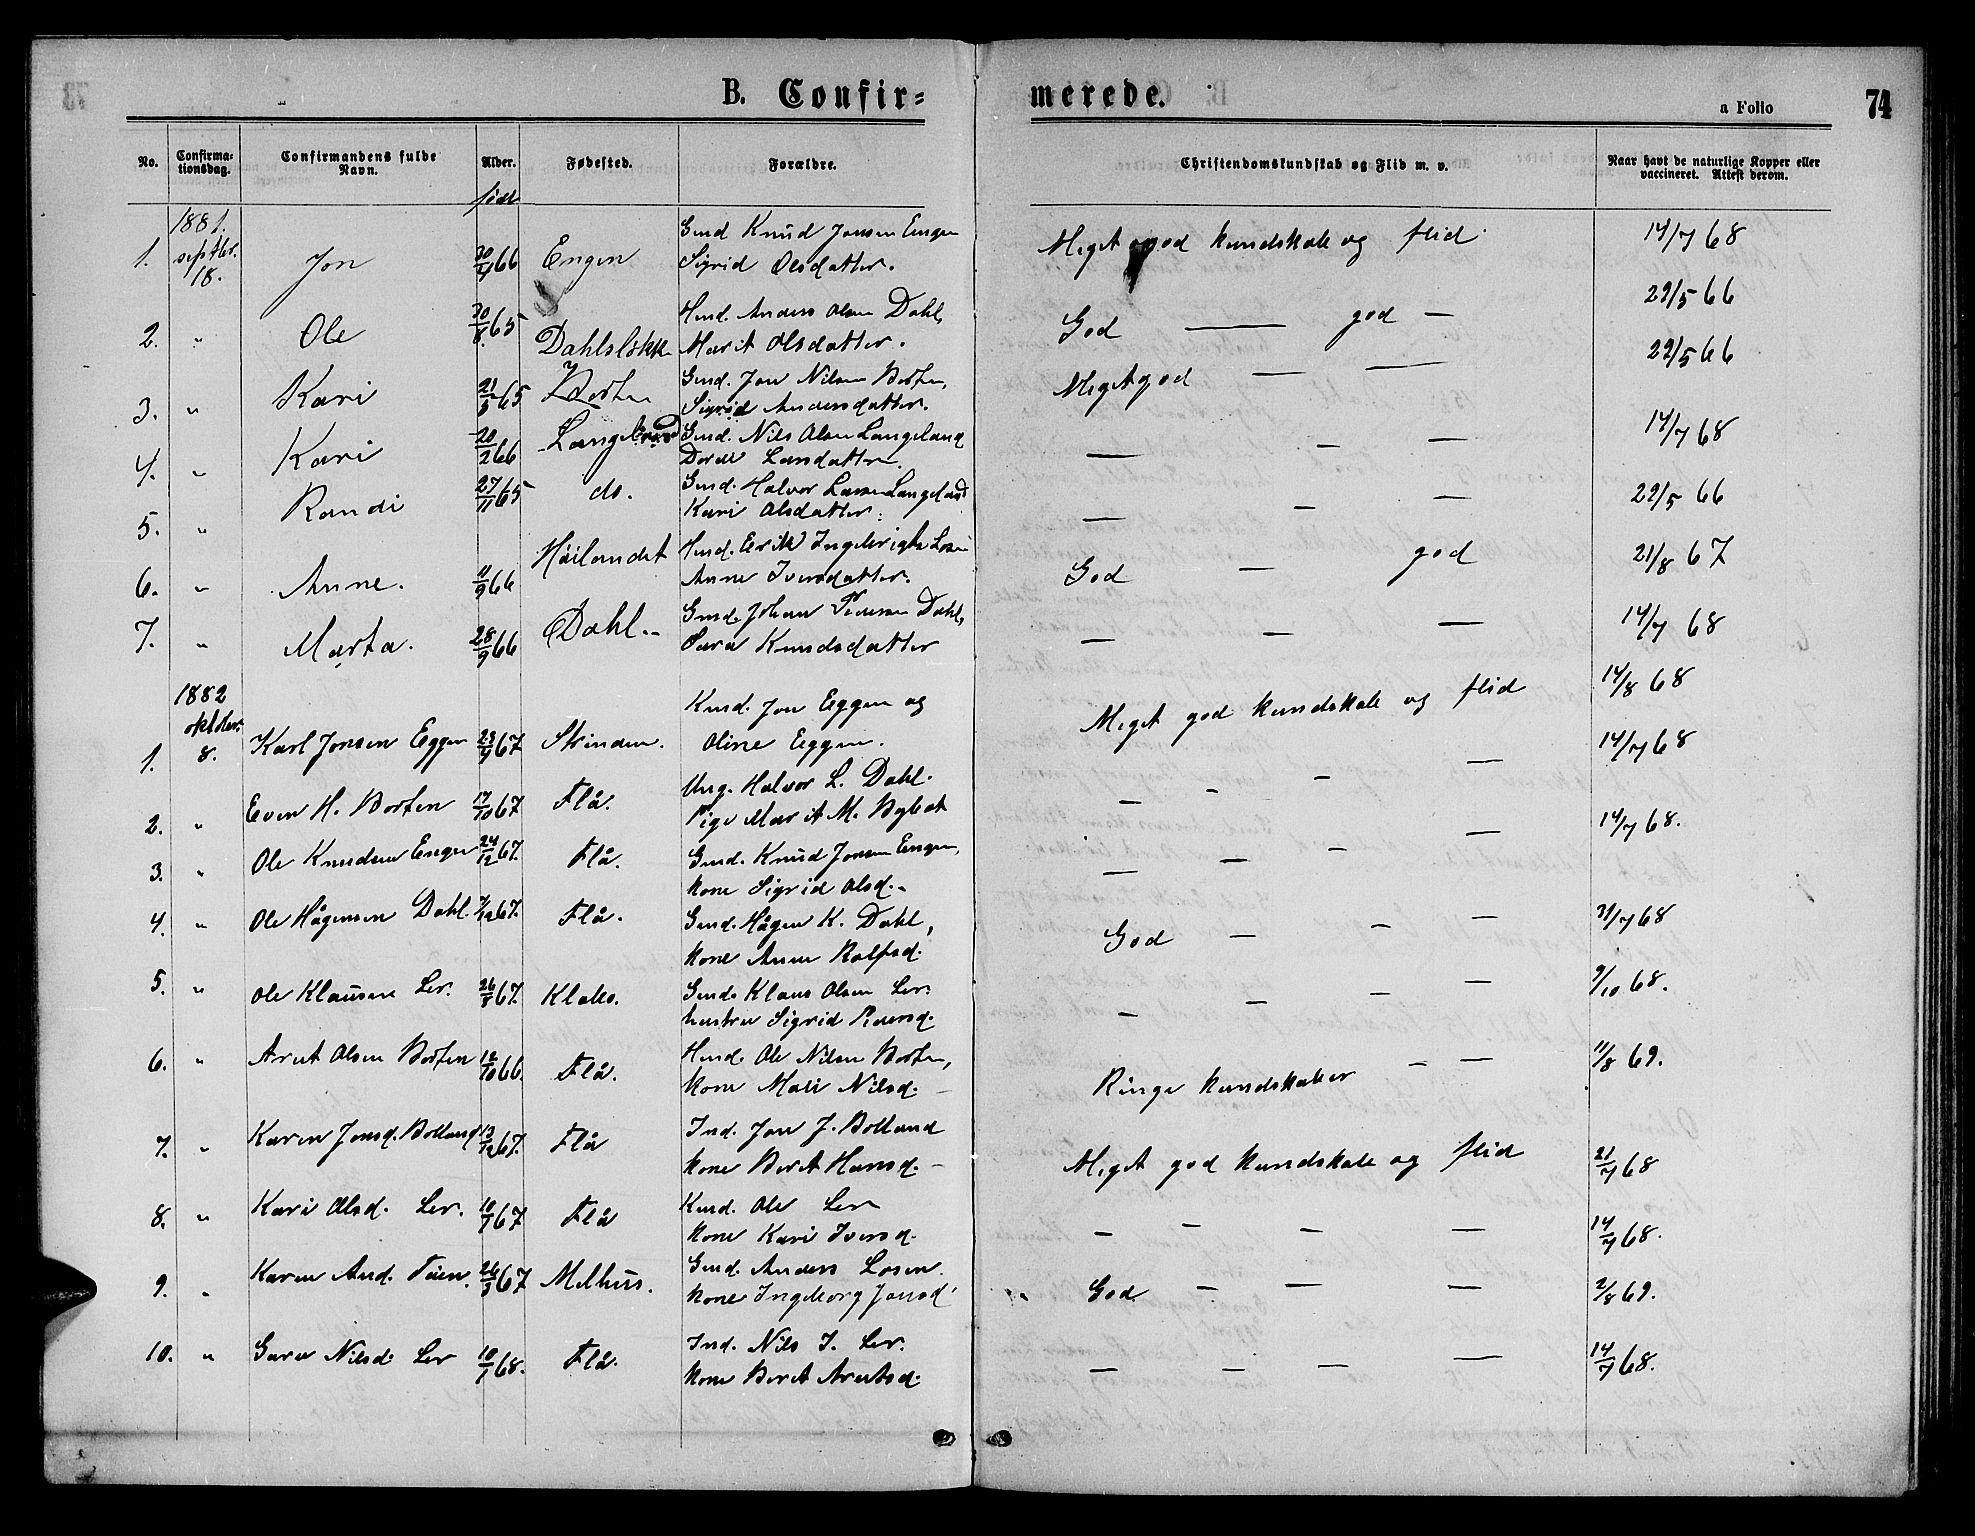 B. Confir-merede.
a Folio 74
No. Confirmationsdag. Confirmandens fulde Navn. Alder. Fødested. Forældre. Christendomskundskab og Flid m. v. Naar havt de naturlige Kopper eller vaccineret. Attest derom.
født
1881.
septbr. Gmd Knud Jonsen Engen Meget god kundskab og flid 14/7 68
1. 18. Jon 66 Engen Sigrid Olsdatter.
Hmd. Anders Olsen Dahl, 29/5 66
2. " Ole 65 Marit Olsdatter. God — god —
Gmd. Jon Nilsen Borten, 29/5 66
3. " Kari 21/5 65 Borten Sigrid Andersdatter. Meget god — —
Gmd. Nils Olsen Langeland 14/7 68
4. " Kari 20/2 66 Langeland Larsdatter. — — —
Gmd. Halvor Larsen Langeland 29/5 66
5. " Randi 27/11 65 do. Kari Olsdatter. — — —
Hmd. Erik Ingebrigts Losen 21/8 67
6. " Anne. 11/9 66 Høilandet Anne Iversdatter. God — god
Gmd. Johan Pedersen Dahl, 14/7 68
7. " Marta. 28/9 66 Dahl. Sara Knudsdatter — — —
1882
oktober Kmd. Jon Eggen og Meget god kundskab og flid 14/8 68
1. 8. Karl Jonsen Eggen 67 Strinden. Oline Eggen.
Ung. Halvor L. Dahl. — — — — 14/7 68
2. " Even H. Borten 67 Flå. Pige Marit M.
3. " Ole Knudsen Engen 24/12 67. Flå. Gmd. Knud Jonsen Engen, — — — — 14/7 68.
kone Sigrid Olsd.
4. " Ole Hågensen Dahl. 67. Flå. Gmd. Hågen K. Dahl, God — — — 68
kone Anne Rolfsd.
5. " Ole Klausen Ler. 67. Klæbo. Gmd. Klaus Olsen Ler. — — — — 9/10 68.
hustru Sigrid Pedersd.
6. " Arnt Olsen Borten 12/10 66. Flå. Hmd. Ole Nilsen Borten, Ringe kundskaber — — 11/8 69.
kone Mali Nilsd.
7. " Karen Jonsd. Bolland 13/12 67. Flå Ind. Jon J. Bolland Meget god kundskab og flid 21/7 68
kone Berit Hansd.
8. " Kari Olsd. Ler. 67 Flå Kmd. Ole Ler — — — — 14/7 68.
kone Kari Iversd.
9. " Karen And. 67 Melhus. Gmd. Anders Losen. God — — — 2/8 69.
kone Ingeborg Jonsd.
10. " Nilsd. Ler 10/1 68. Flå. Ind. Nils J. Ler. — — — — 14/7 68.
kone Berit Arntsd.